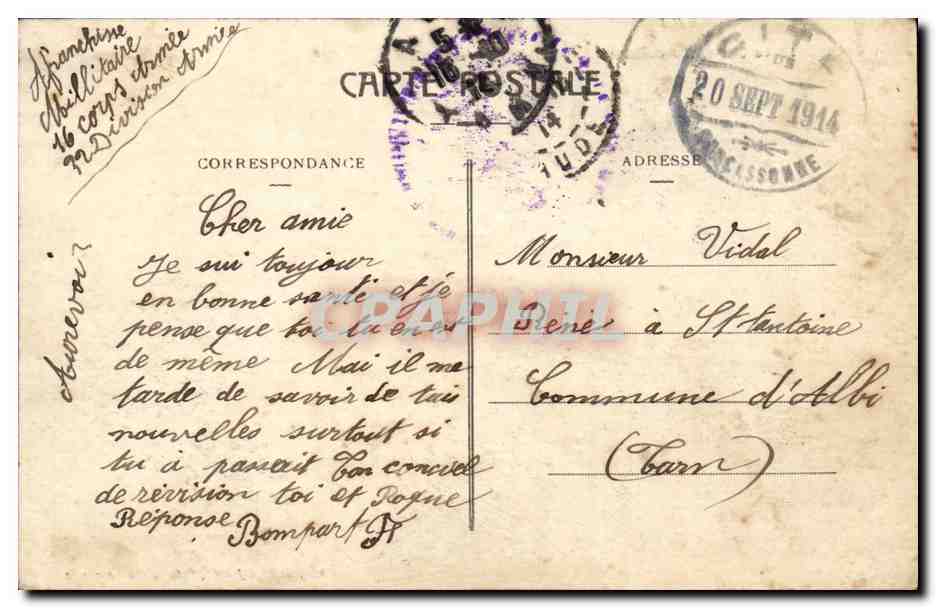 Affranchise
Millitaire
16 corps Armée
32 Division Armée
CARTE POSTALE
20 SEPT 1914
CARCASSONNE
14
AUDE
CORRESPONDANCE
ADRESSE
Cher amie
Je sui toujour
en bonne santé et je
pense que toi tu en est
de même Mai il me
tarde de savoir de tais
nouvelles surtout si
tu à passait ton conciel
de révision toi et Roque
Réponse
Bompart
Aurevoir
Monsieur Vidal
Réné à St tantoine
Commune d'Albi
(Tarn)
CPAPHIL